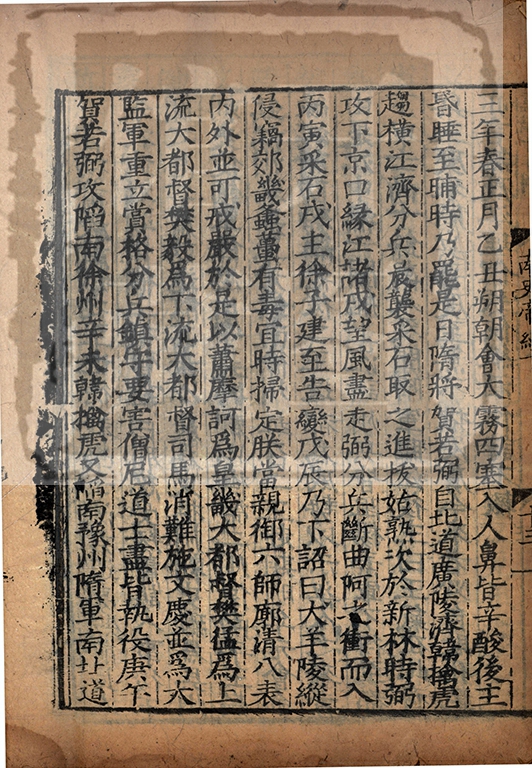 三年春正月乙丑朔朝會大霧四塞入人鼻皆辛酸後主
昏睡至晡時乃罷是日隋將賀若弼自北道廣陵濟韓擒虎
趨橫江濟分兵晨襲采石取之進拔姑熟次於新林時弼
攻下京口緣江諸戍望風盡走弼分兵斷曲阿之衝而入
丙寅采石戍主徐子建至告變戊辰乃下詔曰犬羊陵縱
侵竊郊畿蠭蠆有毒宜時掃定朕當親御六師廓清八表
內外並可戒嚴於是以蕭摩訶爲皇畿大都督樊猛爲上
流大都督樊毅爲下流大都督司馬消難施文慶並爲大
監軍重立賞格分兵鎮守要害僧尼道士盡皆執役庚午
賀若弼攻陷南徐州辛未韓擒虎又陷南豫州隋軍南北道